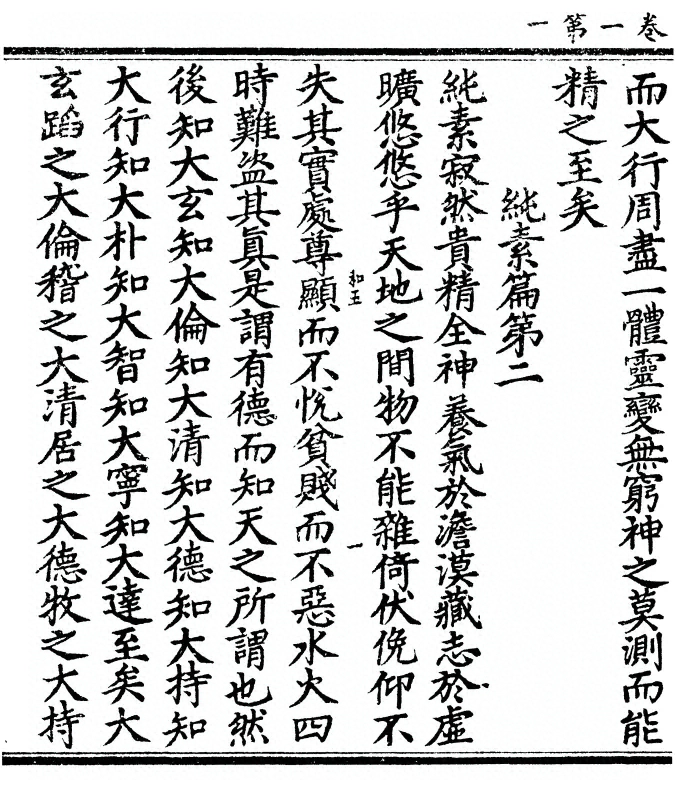 卷一第一
而大行周盡一體靈變無窮神之莫測而能
精之至矣
純素篇第二
純素寂然貴精全神養氣於澹漠藏志於虛
曠悠悠乎天地之間物不能雜倚伏俛仰不
和五
一
失其實處尊顯而不悅貧賤而不惡水火四
時難盜其眞是謂有德而知天之所謂也然
後知大玄知大倫知大清知大德知大持知
大行知大朴知大智知大寧知大達至矣大
玄蹈之大倫稽之大清居之大德牧之大持